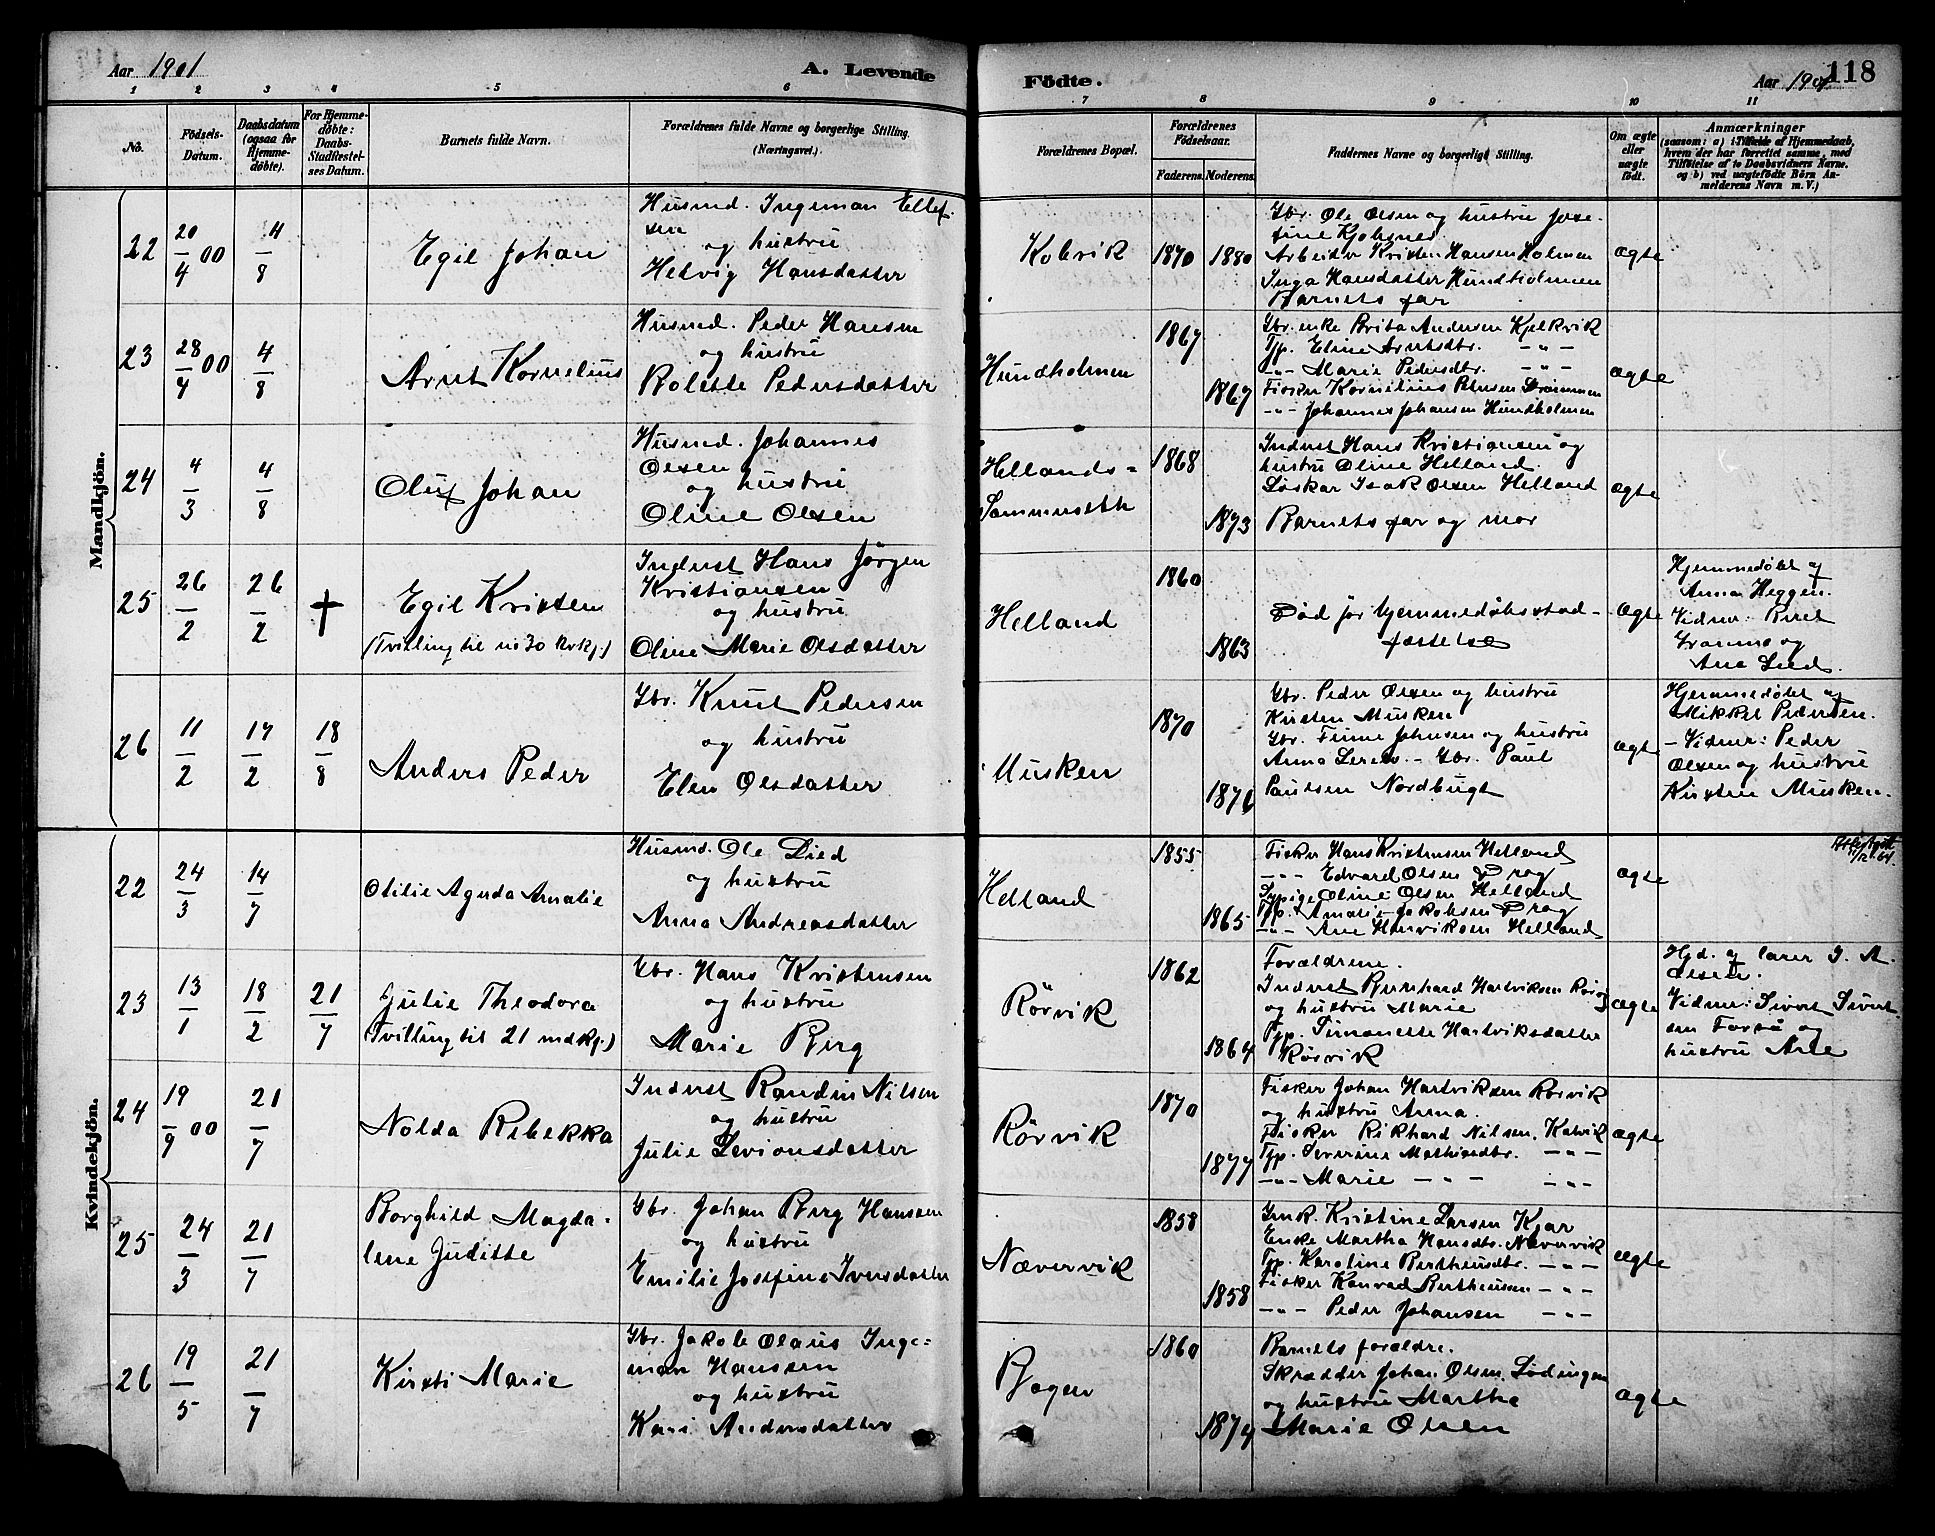 Aar 1901
A. Levende
Födte.
Aar 1901
118
1 2 3 4 5 6 7 8 9 10 11
No.
Födsels-
Datum.
Daabsdatum
(ogsaa for
Hjemme-
døbte).
For Hjemme-
døbte:
Daabs-
Stadfæstel-
ses Datum.
Barnets fulde Navn.
Forældrenes fulde Navne og borgerlige Stilling.
(Næringsvei.)
Forældrenes Bopæl.
Forældrenes
Födselsaar.
Faderens. Moderens.
Faddernes Navne og borgerlige Stilling.
Om ægte
eller
uægte
født.
Anmærkninger
(saasom: a) i Tilfælde af Hjemmedaab,
hvem der har forrettet samme, med
Tilföielse af to Daabsvidners Navne.
og b) ved uægtefödte Börn An-
melderens Navn m. V.)
Mandkjön.
22
20/4 00
4/8
Egil Johan
Husmd. Ingeman Ellef-
sen
og hustru
Hedvig Hansdatter
Kobvik
1870
1880
Gbr. Ole Olsen og hustru Jose-
fine Kjobsnes
Arbeider Kristen Hansen Holmen
Inga Hansdatter Hundholmen
Barnets far
ægte
23
28/4 00
4/8
Arnt Kornelius
Husmd. Peder Hansen
og hustru
Bolette Pedersdatter
Hundholmen
1867
1867
Gbr. enke Brita Andersen Kjelkvik
Tjp. Eline Arntsdtr. -"-
-"- Marie Pedersdtr. -"-
Fisker Kornelius Petersen Strømmen
-"- Johannes Johansen Hundholmen
ægte
24
4/3
4/8
Oluf Johan
Husmd. Johannes
Olsen
og hustru
Oline Olsen
Hellands-
1868
1873
Inderst Hans Kristiansen og
hustru Oline Helland.
Løskar Isak Olsen Helland
Barnets far og mor
ægte
25
26/2
26/2
†
Egil Kristen
(Tvilling til no 30 kvkj.)
Inderst Hans Jørgen
Kristiansen
og hustru
Oline Marie Olsdatter
Helland
1860
1863
Død før hjemmedøbsstad-
fæstelse
ægte
Hjemmedøbt af
Anna Heggen.
Vidner: Beret
og
Ane Lied.
26
11/2
17/2
18/8
Anders Peder
Gbr. Knut Pedersen
og hustru
Elen Olsdatter
Musken
1870
1876
Gbr. Peder Olsen og hustru
Kirsten Musken
Gbr. Finne Johnsen og hustru
Anna - Gbr. Paul
Paulsen Nordbugt
ægte
Hjemmedøbt af
Mikkel Pedersen.
- Vidner: Peder
Olsen og hustru
Kirsten Musken.
Kvindekjön.
22
24/3
14/7
Otilie Agnda Amalie
Husmd. Ole Lied
og hustru
Anna Andreasdatter
Helland
1855
1865
Fisker Hans Kristensen Helland
-"- Edvard Olsen Drag
Tjpige Oline Olsen Helland
Tjp. Amalie Jakobsen Drag
-"- Ane Henriksen Helland
ægte
23
13/1
18/2
21/7
Julie Theodora
(Tvilling til 21 mdkj.)
Gbr. Hans Kristensen
og hustru
Marie Berg
Rørvik
1862
1864
Forældrene.
Inderst Bernhard Hartviksen Rørv.
og hustru Marie
Tjp. Simonette Hartviksdatter
Rørvik
ægte
Hjd. af lærer J. A.
Olsen.
Vidner: Sivert Sivert-
sen Forså og
hustru Ane
24
19/9 00
21/7
Nolda Rebekka
Inderst Randin Nilsen
og hustru
Julie Sevionsdatter
Rørvik
1870
1877
Fisker Johan Hartviksen Rørvik
og hustru Anna.
Fisker Rikhard Nilsen. Kalvik
Tjp. Severine Mathisdtr. -"-
-"- Marie -"- -"-
ægte
25
24/3
21/7
Borghild Magda-
lene Juditte
Gbr. Johan Berg Hansen
og hustru
Emilie Josefine Iversdatter
Nævervik
1858
1858
Gmk. Kristine Larsen Kjær
Enke Martha Hansdtr. Nævervik
Tjp. Karoline Bertheusdtr. -"-
Fisker Konrad Bertheussen -"-
-"- Peder Johansen -"-
ægte
26
19/5
21/7
Kirsti Marie
Gbr. Jakob Olaus Inge-
man Hanssen
og hustru
Kari Andersdatter
Bogen
1860
1874
Barnets forældre.
Skrædder Johan Olsen Lødingen
og hustru Martha
Marie Olsen
ægte